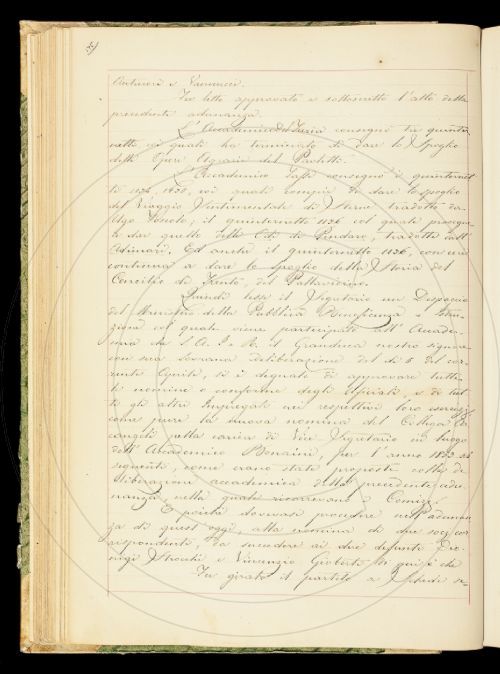 Arcangeli e Vannucci.
Fu letto approvato e sottoscritto l'atto della
precedente adunanza.
L'Accademico Del Furia consegnò tre quinter-
netti coi quali ha terminato di dare lo spoglio
delle Opere Agrarie del Paoletti.
L'Accademico consegnò i quinternet-
ti coi quali compie di dare lo spoglio
del Viaggio Sentimentale di Sterne tradotto da
Ugo Foscolo; il quinternetto 1136 col quale prosegue
a dar quello delle Odi di Pindaro, tradotte dall'
Adimari. Ed anche il quinternetto 1136, con cui
continua a dare lo spoglio della Storia del
Concilio di Trento, del Pallavicino.
Quindi lesse il Segretario un Dispaccio
del Ministro della Pubblica Beneficenza e Istru-
zione col quale viene participato all' Accade-
mia che S. A. I. e R. il Granduca nostro signore
con sua Sovrana deliberazione del dì 5 del cor-
rente Aprile, si è degnato di approvare tutte
le nomine e conferme degli Ufficiali, e di tut-
ti gli altri Impiegati nei respettivi loro esercizj
come pure la nuova nomina del Collega Ar-
cangeli nella carica di Vice Segretario in luogo
dell' Accademico Bonaini, per l'anno
seguente, come erano state proposte colla de-
liberazione accademica della precedente adu-
nanza, nella quale ricorrevano i Comizj.
E poichè dovevasi procedere nell'adunan-
za di quest'oggi, alla nomina di due soci cor-
rispondenti, da succedere ai due defunti Dio-
nigi Strocchi e Vincenzio Gioberti,
Fu girato il partito a schede se-